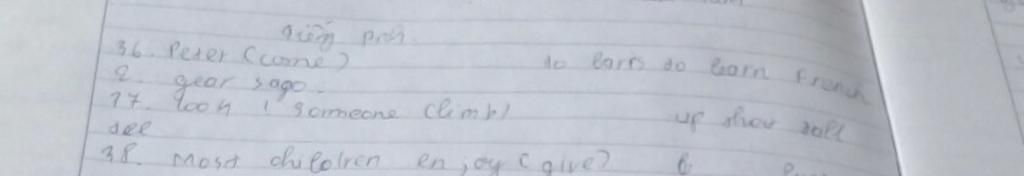 36. Peter (come) to Paris to learn French
2 years ago.
37. Look! Someone (climb) up that tall
38. Most children enjoy (give)